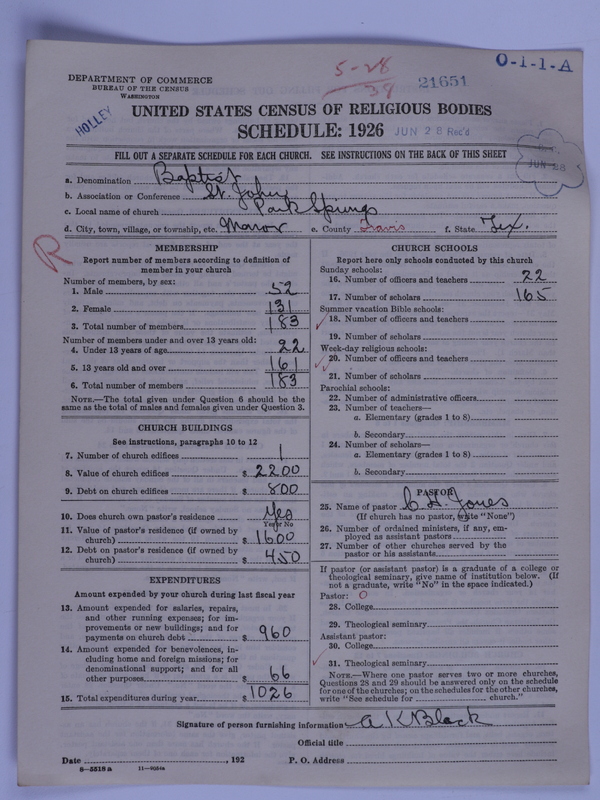 O-1-1-A
5-28
38
21651
DEPARTMENT OF COMMERCE
BUREAU OF THE CENSUS
WASHINGTON
HOLLEY
UNITED STATES CENSUS OF RELIGIOUS BODIES
SCHEDULE: 1926 JUN 28 Rec'd
FILL OUT A SEPARATE SCHEDULE FOR EACH CHURCH. SEE INSTRUCTIONS ON THE BACK OF THIS SHEET
JUN 28
a. Denomination Baptist
b. Association or Conference St. John
c. Local name of church Park Springs
d. City, town, village, or township, etc. Manor e. County Travis f. State Tex.
R
MEMBERSHIP
Report number of members according to definition of
member in your church
Number of members, by sex:
1. Male 52
2. Female 131
3. Total number of members 183
Number of members under and over 13 years old:
4. Under 13 years of age 22
5. 13 years old and over 161
6. Total number of members 183
NOTE.—The total given under Question 6 should be
same as the total of males and females given under Question 3.
CHURCH BUILDINGS
See instructions, paragraphs 10 to 12
7. Number of church edifices 1
8. Value of church edifices $ 2200
9. Debt on church edifices $ 800
10. Does church own pastor's residence Yes
Yes or No
11. Value of pastor's residence (if owned by
church) $ 1600
12. Debt on pastor's residence (if owned by
church) $ 450
EXPENDITURES
Amount expended by your church during last fiscal year
13. Amount expended for salaries, repairs,
and other running expenses; for im-
provements or new buildings; and for
payments on church debt $ 960
14. Amount expended for benevolences, in-
cluding home and foreign missions; for
denominational support; and for all
other purposes $ 66
15. Total expenditures during year $ 1026
CHURCH SCHOOLS
Report here only schools conducted by this church
Sunday schools:
16. Number of officers and teachers 22
17. Number of scholars 165
Summer vacation Bible schools:
18. Number of officers and teachers
19. Number of scholars
Week-day religious schools:
20. Number of officers and teachers
21. Number of scholars
Parochial schools:
22. Number of administrative officers
23. Number of teachers—
a. Elementary (grades 1 to 8)
b. Secondary
24. Number of scholars—
a. Elementary (grades 1 to 8)
b. Secondary
PASTOR
25. Name of pastor C H Jones
(If church has no pastor, write "None")
26. Number of ordained ministers, if any, em-
ployed as assistant pastors
27. Number of other churches served by the
pastor or his assistants
If pastor (or assistant pastor) is a graduate of a college or
theological seminary, give name of institution below. (If
not a graduate, write "No" in the space indicated.)
Pastor: O
28. College
29. Theological seminary
Assistant pastor:
30. College
31. Theological seminary
NOTE.—Where one pastor serves two or more churches,
Questions 28 and 29 should be answered only on the schedule
for one of the churches; on the schedules for the other churches,
write "See schedule for church."
Signature of person furnishing information A K Black
Official title
Date , 192 P. O. Address
8—5518 a 11—9054a